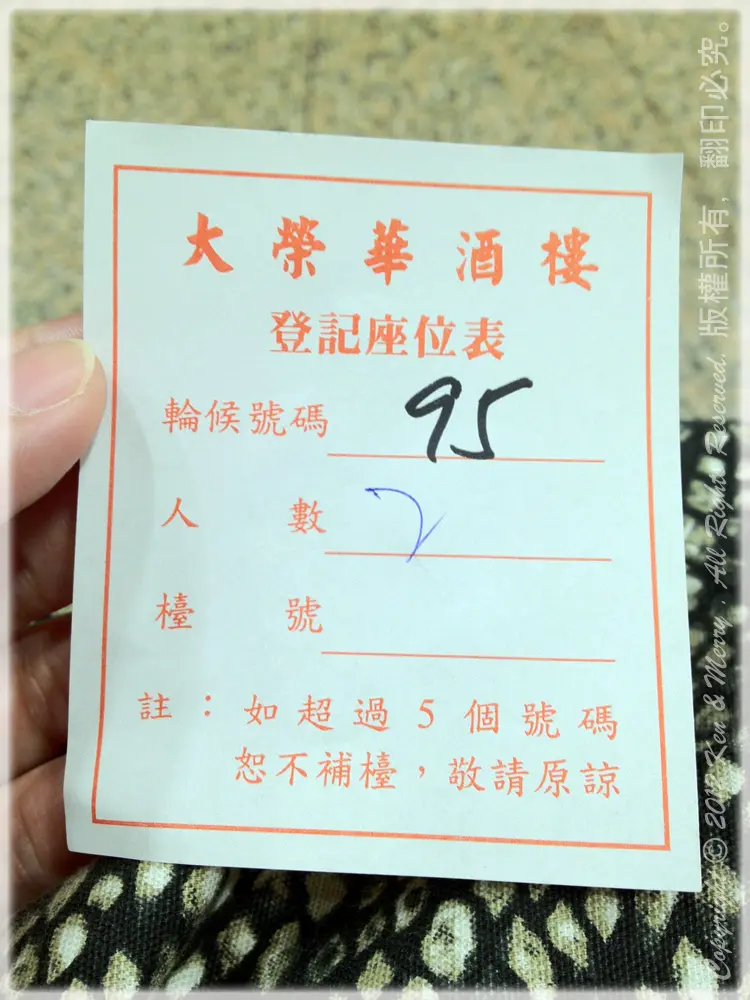 大榮華酒樓
登記座位表
輪候號碼 95
人數 2
檯號
註：如超過5個號碼
恕不補檯，敬請原諒
Copyright © 2012 Ken & Merry , All Right Reserved. 版權所有，翻印必究。